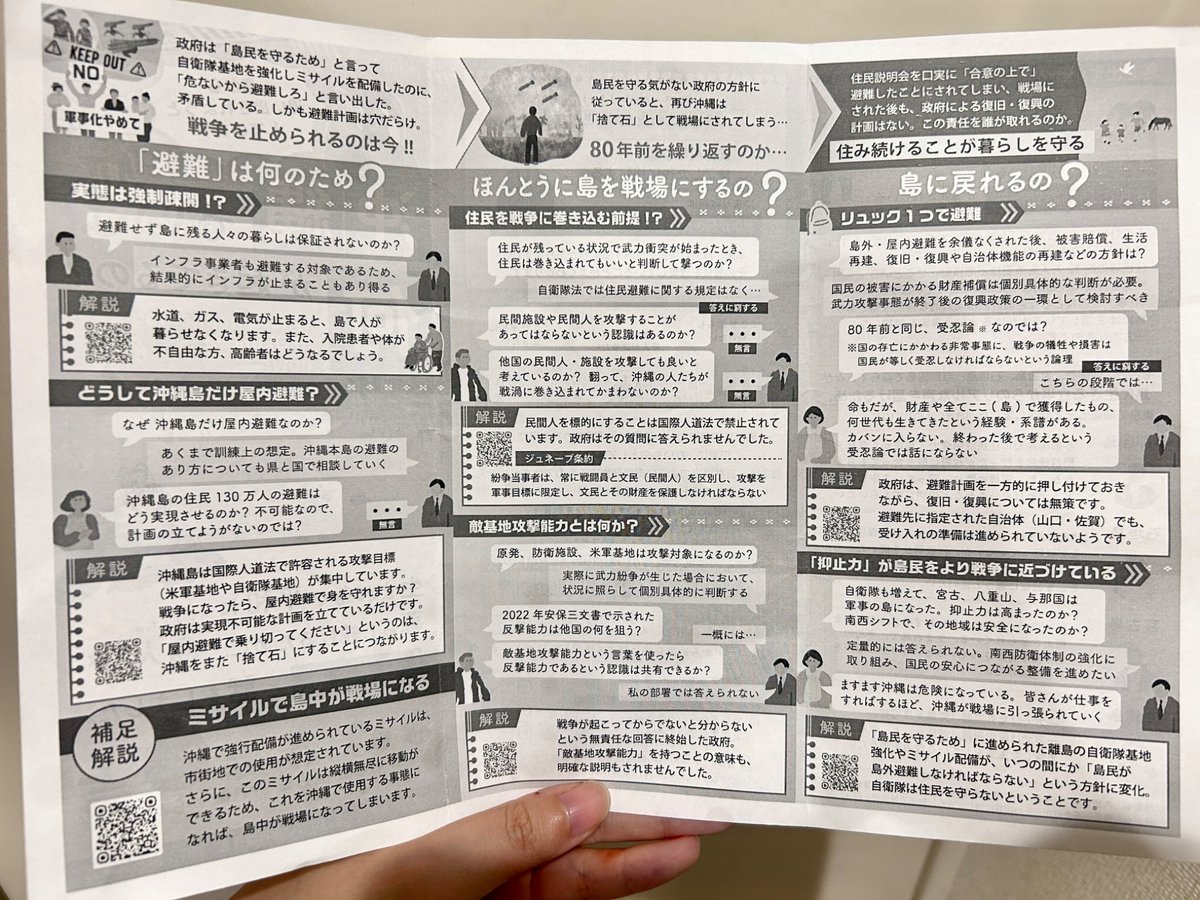 KEEP OUT
NO
軍事化やめて
政府は「島民を守るため」と言って
自衛隊基地を強化しミサイルを配備したのに、
「危ないから避難しろ」と言い出した。
矛盾している。しかも避難計画は穴だらけ。
戦争を止められるのは今!!
「避難」は何のため?
実態は強制疎開!?
避難せず島に残る人々の暮らしは保証されないのか?
インフラ事業者も避難する対象であるため、
結果的にインフラが止まることもあり得る
解説
水道、ガス、電気が止まると、島で人が
暮らせなくなります。また、入院患者や体が
不自由な方、高齢者はどうなるでしょう。
どうして沖縄島だけ屋内避難?
なぜ 沖縄島だけ屋内避難なのか?
あくまで訓練上の想定。沖縄本島の避難の
あり方についても県と国で相談していく
沖縄島の住民 130 万人の避難は
どう実現させるのか? 不可能なので、
計画の立てようがないのでは?
・・・
無言
解説
沖縄島は国際人道法で許容される攻撃目標
(米軍基地や自衛隊基地)が集中しています。
戦争になったら、屋内避難で身を守れますか?
政府は実現不可能な計画を立てているだけです。
「屋内避難で乗り切ってください」というのは、
沖縄をまた「捨て石」にすることにつながります。
補足
解説
ミサイルで島中が戦場になる
沖縄で強行配備が進められているミサイルは、
市街地での使用が想定されています。
さらに、このミサイルは縦横無尽に移動が
できるため、これを沖縄で使用する事態に
なれば、島中が戦場になってしまいます。
島民を守る気がない政府の方針に
従っていると、再び沖縄は
「捨て石」として戦場にされてしまう…
80 年前を繰り返すのか…
ほんとうに島を戦場にするの?
住民を戦争に巻き込む前提!?
住民が残っている状況で武力衝突が始まったとき、
住民は巻き込まれてもいいと判断して撃つのか?
自衛隊法では住民避難に関する規定はなく…
答えに窮する
民間施設や民間人を攻撃することが
あってはならないという認識はあるのか?
・・・
無言
他国の民間人・施設を攻撃しても良いと
考えているのか? 翻って、沖縄の人たちが
戦渦に巻き込まれてかまわないのか?
・・・
無言
解説
民間人を標的にすることは国際人道法で禁止されて
います。政府はその質問に答えられませんでした。
ジュネーブ条約
紛争当事者は、常に戦闘員と文民(民間人)を区別し、攻撃を
軍事目標に限定し、文民とその財産を保護しなければならない
敵基地攻撃能力とは何か?
原発、防衛施設、米軍基地は攻撃対象になるのか?
実際に武力紛争が生じた場合において、
状況に照らして個別具体的に判断する
2022 年安保三文書で示された
反撃能力は他国の何を狙う?
一概には…
敵基地攻撃能力という言葉を使ったら
反撃能力であるという認識は共有できるか?
私の部署では答えられない
解説
戦争が起こってからでないと分からない
という無責任な回答に終始した政府。
「敵基地攻撃能力」を持つことの意味も、
明確な説明もされませんでした。
住民説明会を口実に「合意の上で」
避難したことにされてしまい、戦場に
された後も、政府による復旧・復興の
計画はない。この責任を誰が取れるのか。
住み続けることが暮らしを守る
島に戻れるの?
リュック 1 つで避難
島外・屋内避難を余儀なくされた後、被害賠償、生活
再建、復旧・復興や自治体機能の再建などの方針は?
国民の被害にかかる財産補償は個別具体的な判断が必要。
武力攻撃事態が終了後の復興政策の一環として検討すべき
80 年前と同じ、受忍論 ※ なのでは?
※国の存亡にかかわる非常事態に、戦争の犠牲や損害は
国民が等しく受忍しなければならないという論理
答えに窮する
こちらの段階では…
命もだが、財産や全てここ(島)で獲得したもの、
何世代も生きてきたという経験・系譜がある。
カバンに入らない。終わった後で考えるという
受忍論では話にならない
解説
政府は、避難計画を一方的に押し付けておき
ながら、復旧・復興については無策です。
避難先に指定された自治体(山口・佐賀)でも、
受け入れの準備は進められていないようです。
「抑止力」が島民をより戦争に近づけている
自衛隊も増えて、宮古、八重山、与那国は
軍事の島になった。抑止力は高まったのか?
南西シフトで、その地域は安全になったのか?
定量的には答えられない。南西防衛体制の強化に
取り組み、国民の安心につながる整備を進めたい
ますます沖縄は危険になっている。皆さんが仕事を
すればするほど、沖縄が戦場に引っ張られていく
解説
「島民を守るため」に進められた離島の自衛隊基地
強化やミサイル配備が、いつの間にか「島民が
島外避難しなければならない」という方針に変化。
自衛隊は住民を守らないということです。